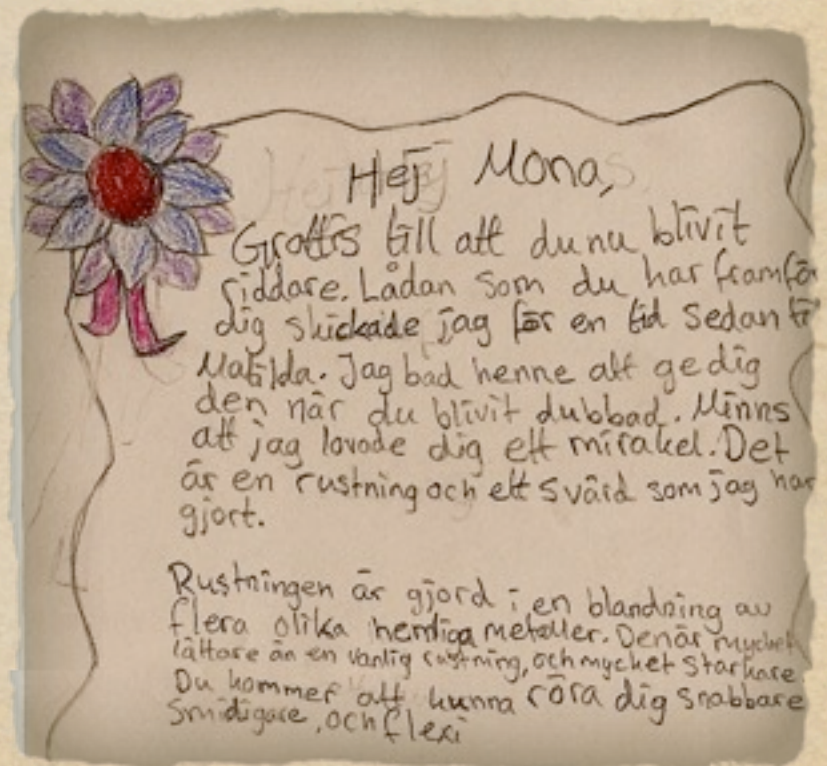 Hej Mona,
Grattis till att du nu blivit
riddare. Lådan som du har framför
dig skickade jag för en tid sedan
Matilda. Jag bad henne att ge dig
den när du blivit dubbad. Minns
att jag lovade dig ett mirakel. Det
är en rustning och ett svärd som jag har
gjort.
Rustningen är gjord i en blandning av
flera olika hemliga metaller. Den är mycket
lättare än en vanlig rustning, och mycket starkare
Du kommer att kunna röra dig snabbare
smidigare, och flexi